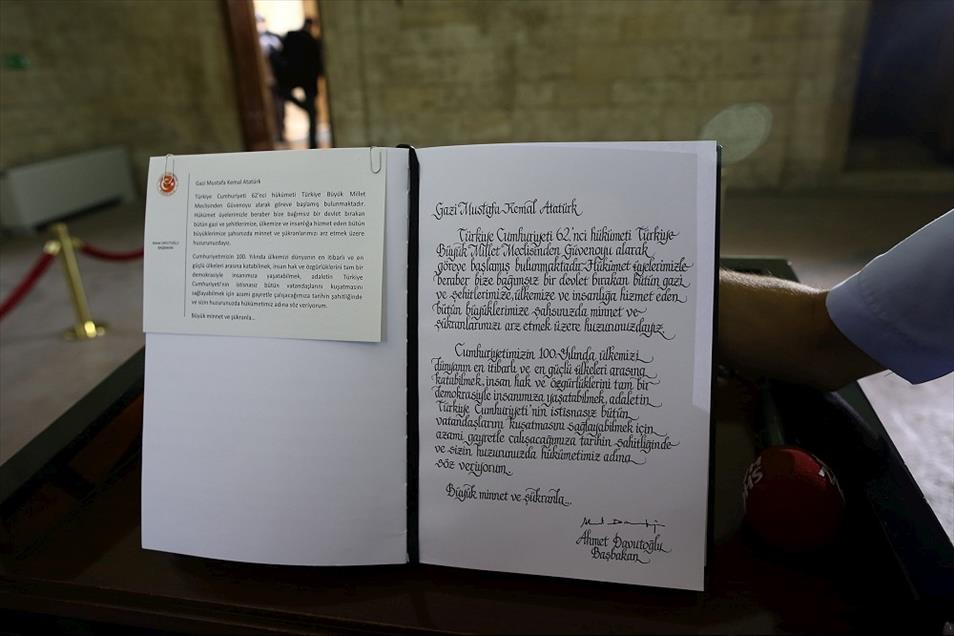 Gazi Mustafa Kemal Atatürk
Türkiye Cumhuriyeti 62'nci hükümeti Türkiye Büyük Millet
Meclisinden Güvenoyu alarak göreve başlamış bulunmaktadır.
Hükümet üyelerimizle beraber bize bağımsız bir devlet bırakan
bütün gazi ve şehitlerimize, ülkemize ve insanlığa hizmet eden bütün
büyüklerimize şahsınızda minnet ve şükranlarımızı arz etmek üzere
huzurunuzdayız.
Cumhuriyetimizin 100. Yılında ülkemizi dünyanın en itibarlı ve en
güçlü ülkeleri arasına katabilmek, insan hak ve özgürlüklerini tam bir
demokrasiyle insanımıza yaşatabilmek, adaletin Türkiye
Cumhuriyeti'nin istisnasız bütün vatandaşlarını kuşatmasını
sağlayabilmek için azami gayretle çalışacağımıza tarihin şahitliğinde
ve sizin huzurunuzda hükümetimiz adına söz veriyorum.
Büyük minnet ve şükranla...
Ahmet DAVUTOĞLU
BAŞBAKAN
Gazi Mustafa Kemal Atatürk
Türkiye Cumhuriyeti 62.'nci hükümeti Türkiye
Büyük Millet Meclisinden Güvenoyu alarak
göreve başlamış bulunmaktadır. Hükümet üyelerimizle
beraber bize bağımsız bir devlet bırakan bütün gazi
ve şehitlerimize, ülkemize ve insanlığa hizmet eden
bütün büyüklerimize şahsınızda minnet ve
şükranlarımızı arz etmek üzere huzurunuzdayız.
Cumhuriyetimizin 100. Yılında ülkemizi
dünyanın en itibarlı ve en güçlü ülkeleri arasına
katabilmek, insan hak ve özgürlüklerini tam bir
demokrasiyle insanımıza yaşatabilmek, adaletin
Türkiye Cumhuriyeti'nin istisnasız bütün
vatandaşlarını kuşatmasını sağlayabilmek için
azami gayretle çalışacağımıza tarihin şahitliğinde
ve sizin huzurunuzda hükümetimiz adına
söz veriyorum.
Büyük minnet ve şükranla...
Ahmet Davutoğlu
Başbakan